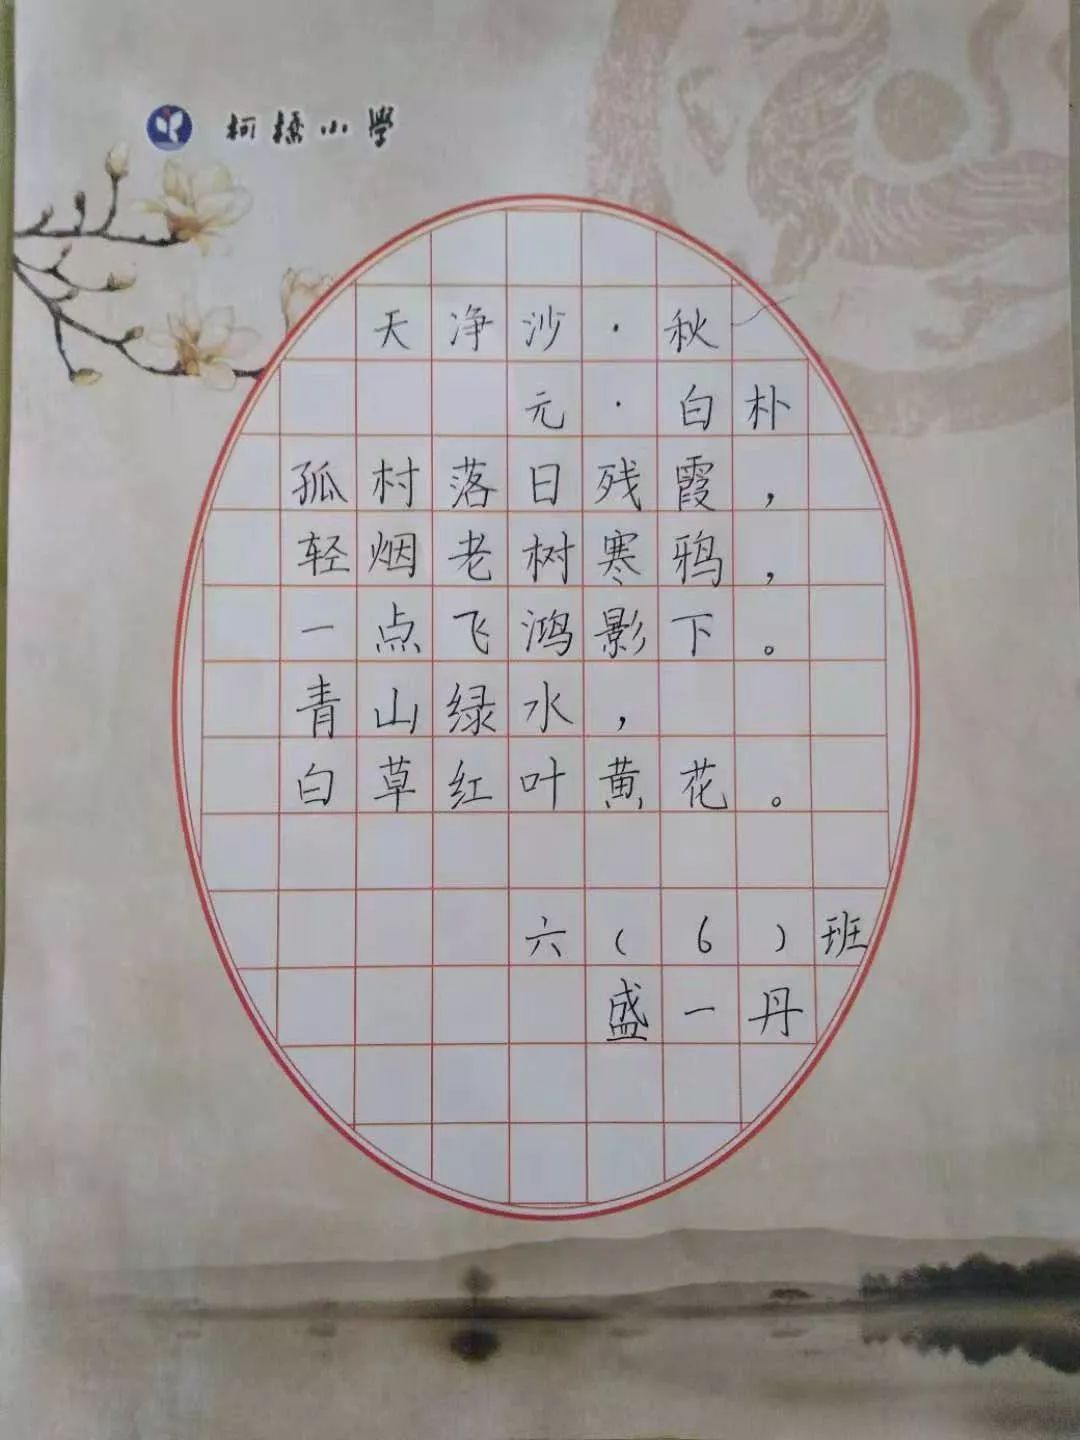 柯橋小學
天净沙·秋
元·白朴
孤村落日残霞，
轻烟老树寒鸦，
一点飞鸿影下。
青山绿水，
白草红叶黄花。
六(6)班
盛一丹